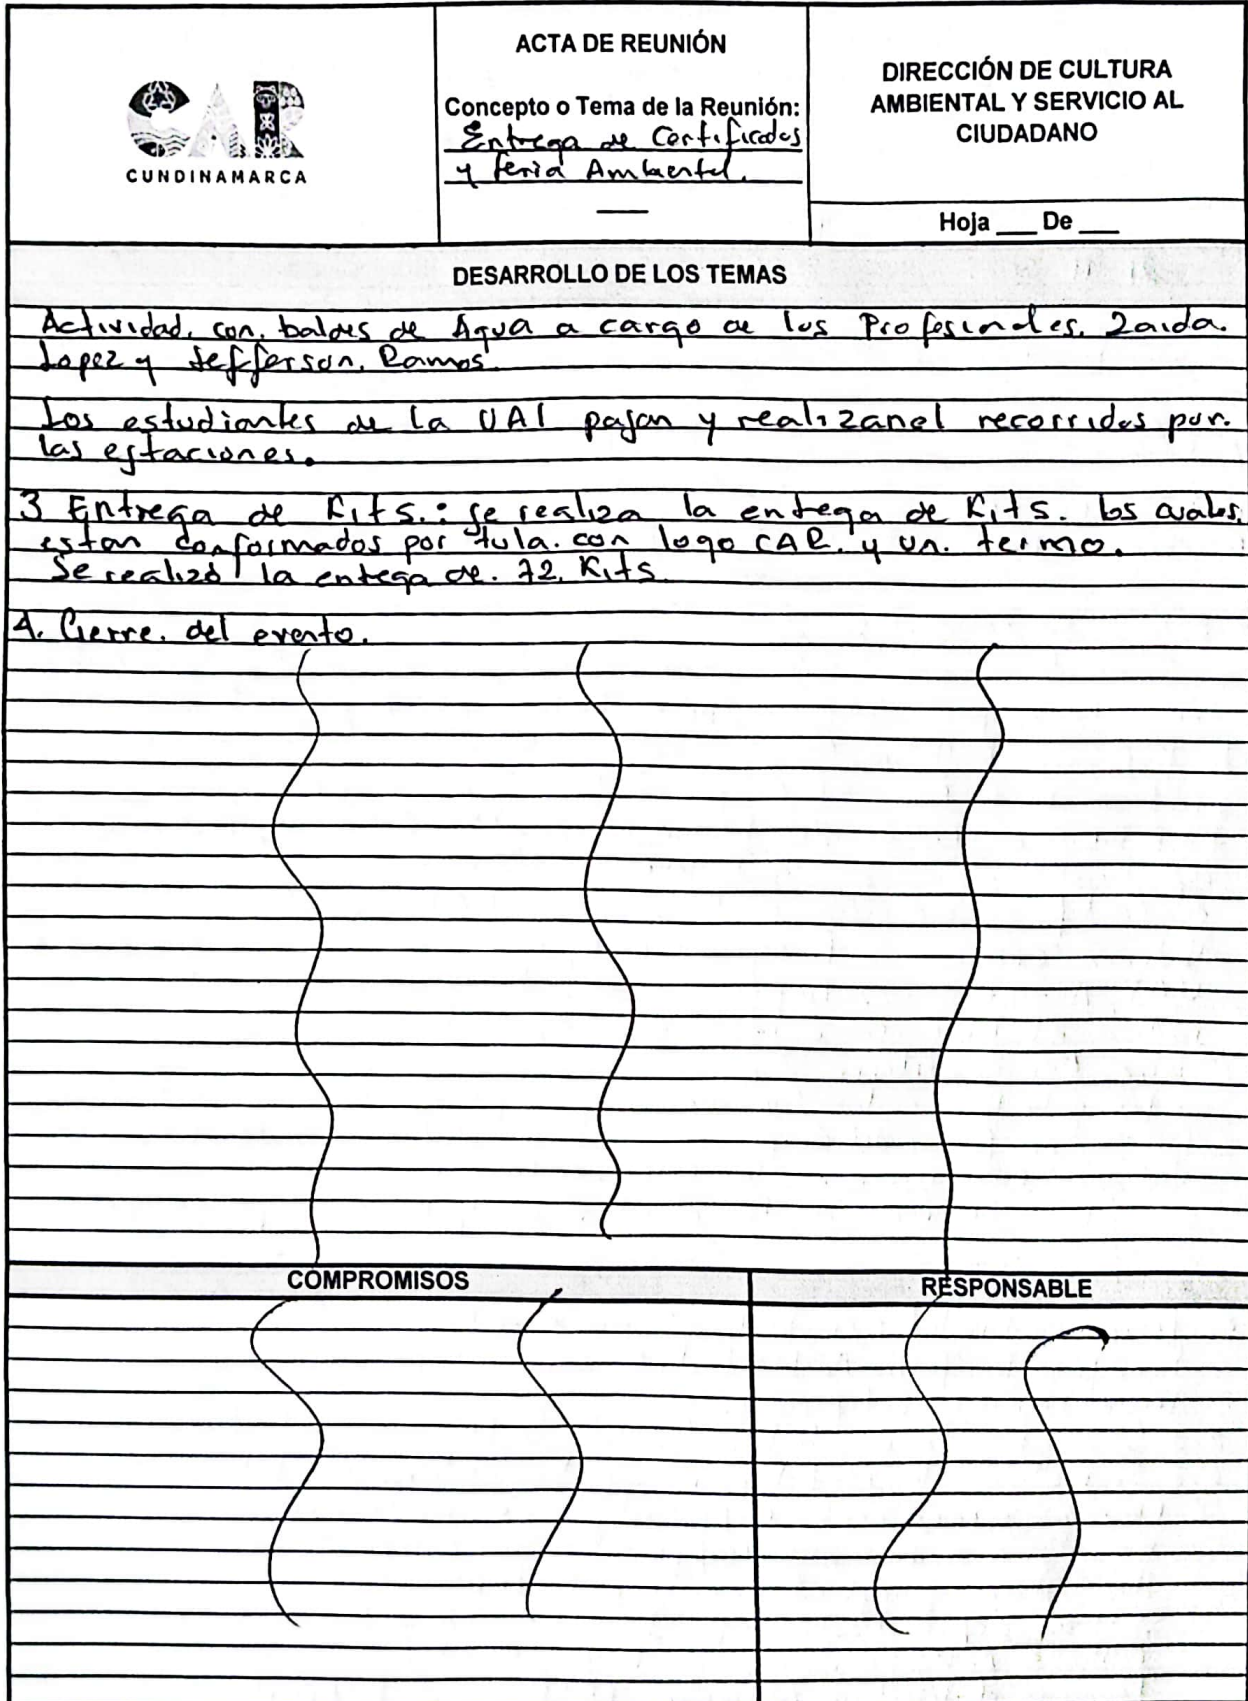 CAR
CUNDINAMARCA
ACTA DE REUNIÓN
Concepto o Tema de la Reunión:
Entrega de Certificados
y feria Ambiental.
DIRECCIÓN DE CULTURA
AMBIENTAL Y SERVICIO AL
CIUDADANO
Hoja ___ De ___
DESARROLLO DE LOS TEMAS
Actividad. con. baldes de Agua a cargo de los Profesionales. Zaida.
Lopez y Jefferson. Ramos.
Los estudiantes de la UAI pasan y realizan el recorridos por.
las estaciones.
3 Entrega de Kits.: se realiza la entega de Kits. los cuales.
estan conformados por tula. con logo CAR. y un. termo.
Se realizó la entega de. 72. Kits
4. Cierre. del evento.
COMPROMISOS
RESPONSABLE